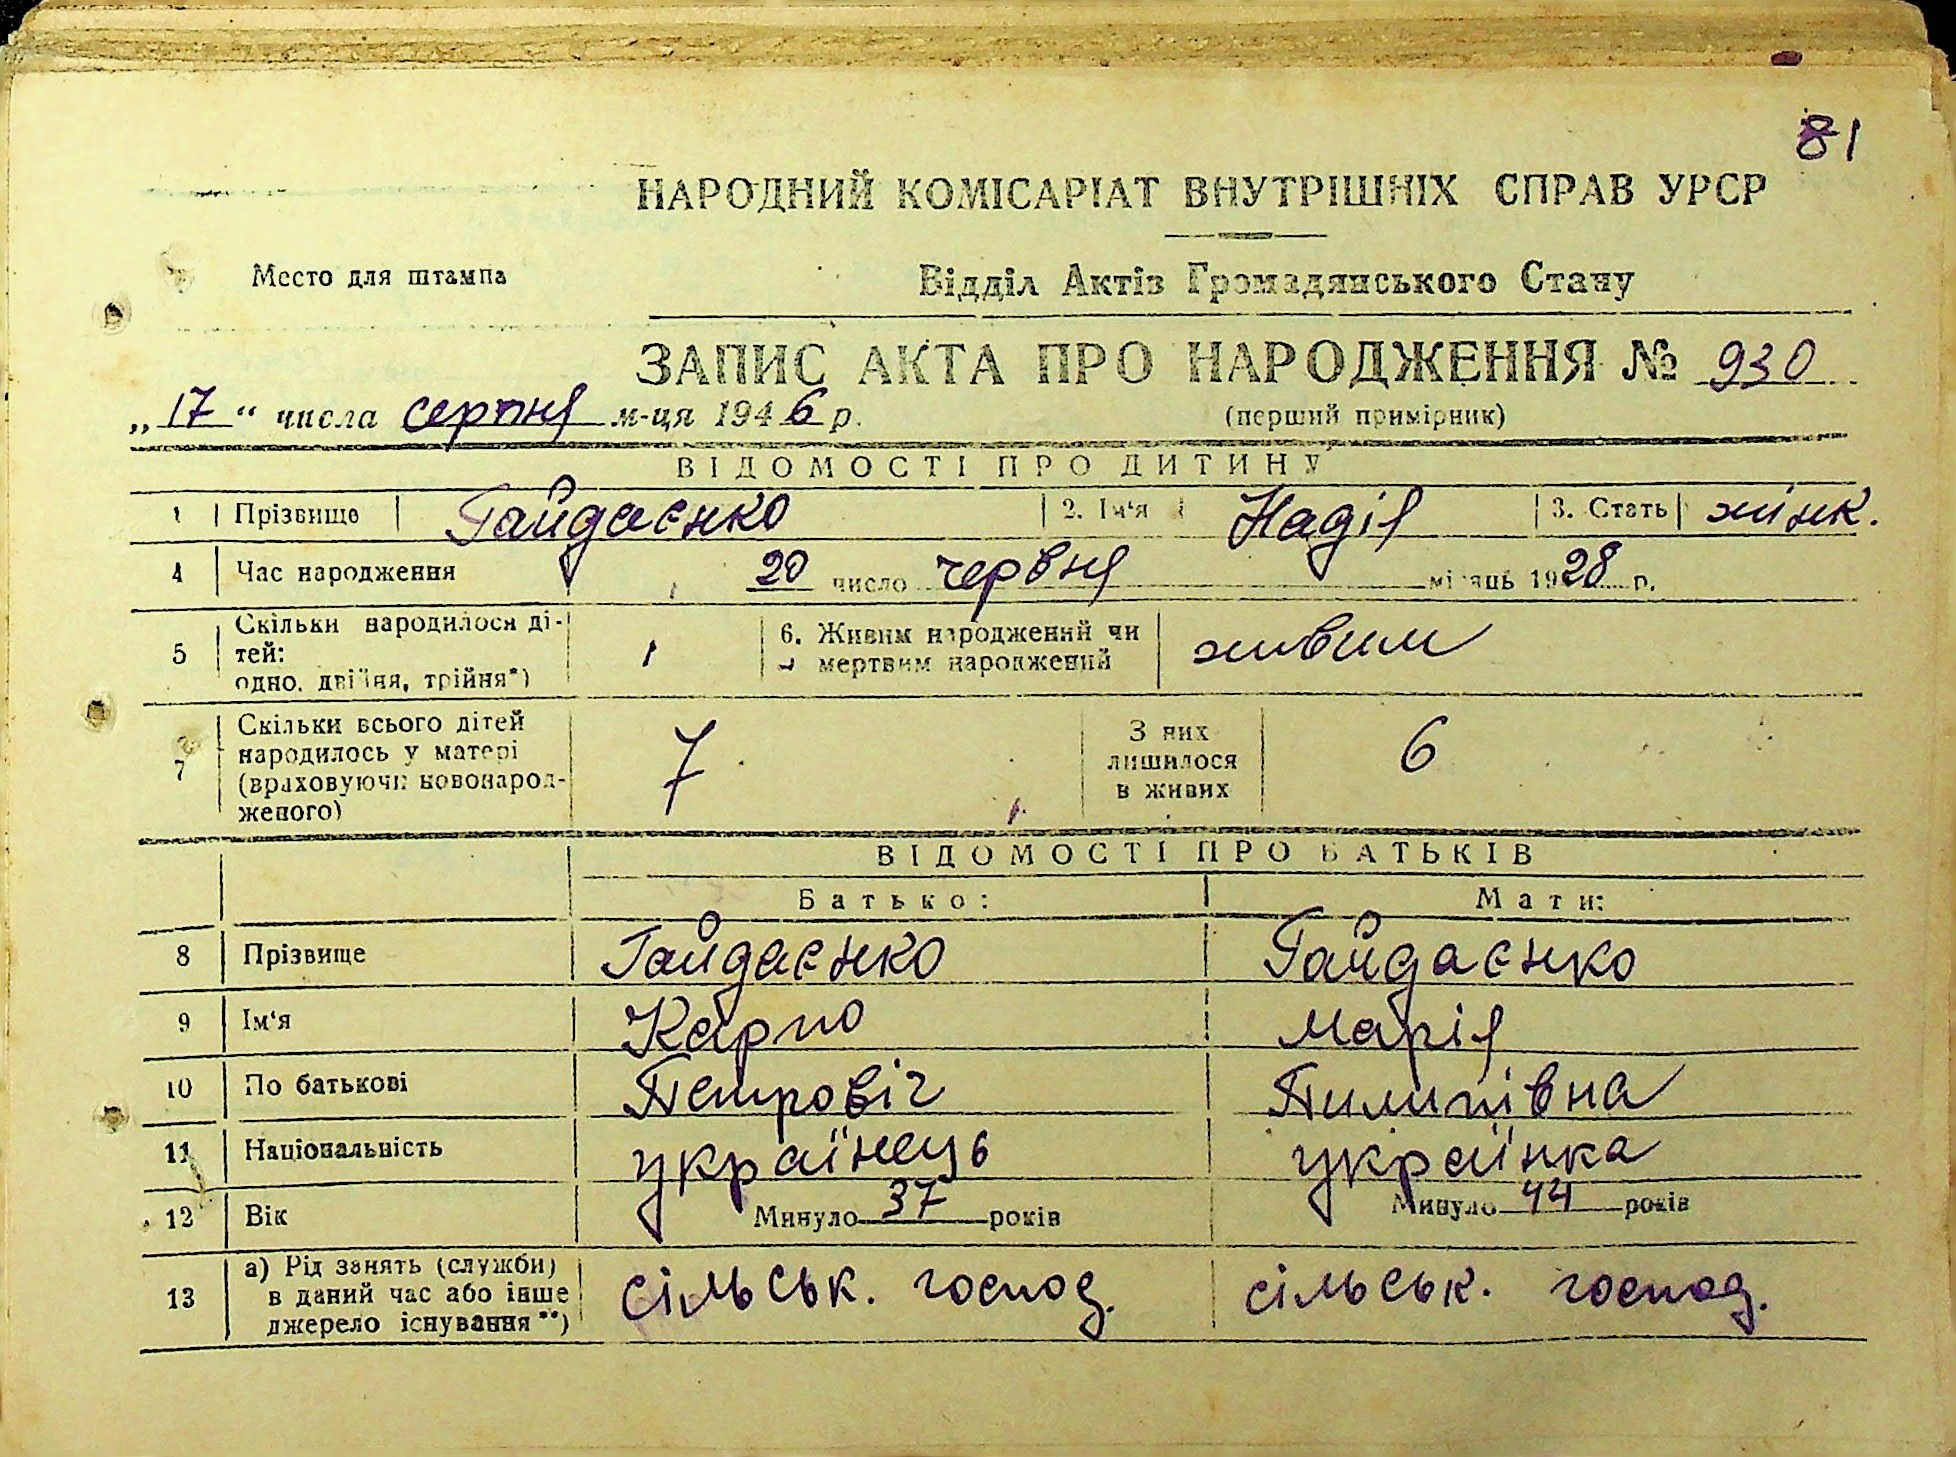 81
НАРОДНИЙ КОМІСАРІАТ ВНУТРІШНІХ СПРАВ УРСР
Место для штампа
Відділ Актів Громадянського Стану
ЗАПИС АКТА ПРО НАРОДЖЕННЯ № 930
„17“ числа серпня м-ця 1946 р.
(перший примірник)
ВІДОМОСТІ ПРО ДИТИНУ
1 Прізвище Гайдаєнко 2. Ім‘я Надія 3. Стать жінк.
4 Час народження 20 число червня місяць 1928 р.
5 Скільки народилося ді-
тей:
одно, двійня, трійня*)
1
6. Живим народжений чи
мертвим народжений
живим
7 Скільки всього дітей
народилось у матері
(враховуючи новонарод-
женого)
7
З них
лишилося
в живих
6
ВІДОМОСТІ ПРО БАТЬКІВ
Батько: Мати:
8 Прізвище Гайдаєнко Гайдаєнко
9 Ім‘я Карпо Марія
10 По батькові Петровіч Пилипівна
11 Національність українець українка
12 Вік Минуло 37 років Минуло 44 років
13 а) Рід занять (служби)
в даний час або інше
джерело існування**)
сільськ. господ. сільськ. господ.